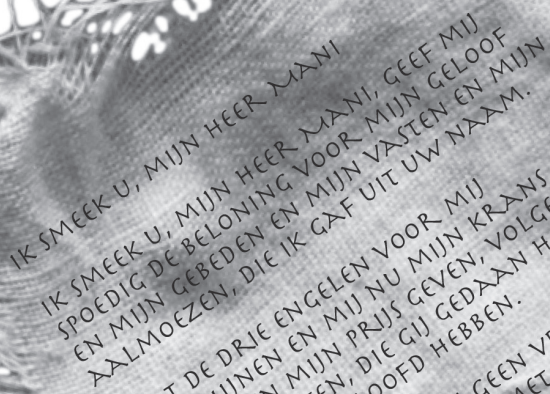 IK SMEEK U, MIJN HEER MANI
IK SMEEK U, MIJN HEER MANI, GEEF MIJ
SPOEDIG DE BELONING VOOR MIJN GELOOF
EN MIJN GEBEDEN EN MIJN VASTEN EN MIJN
AALMOEZEN, DIE IK GAF UIT UW NAAM.
DE DRIE ENGELEN VOOR MIJ
EN MIJ NU MIJN KRANS
MIJN PRIJS GEVEN,
DIE GIJ GEDAAN
HEBBEN.
GEEN